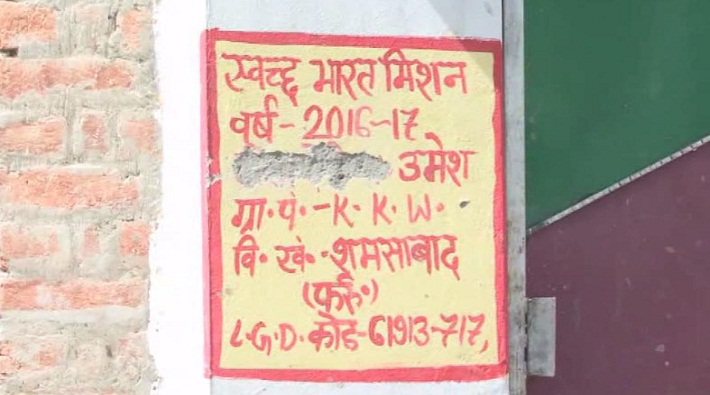 स्वच्छ भारत मिशन
वर्ष - 2016-17
उमेश
ग्रा॰ पं॰ - K. K. W.
वि॰ खं॰ - शमसाबाद
(फर्रु॰)
L.G.D. कोड - G1913-717,